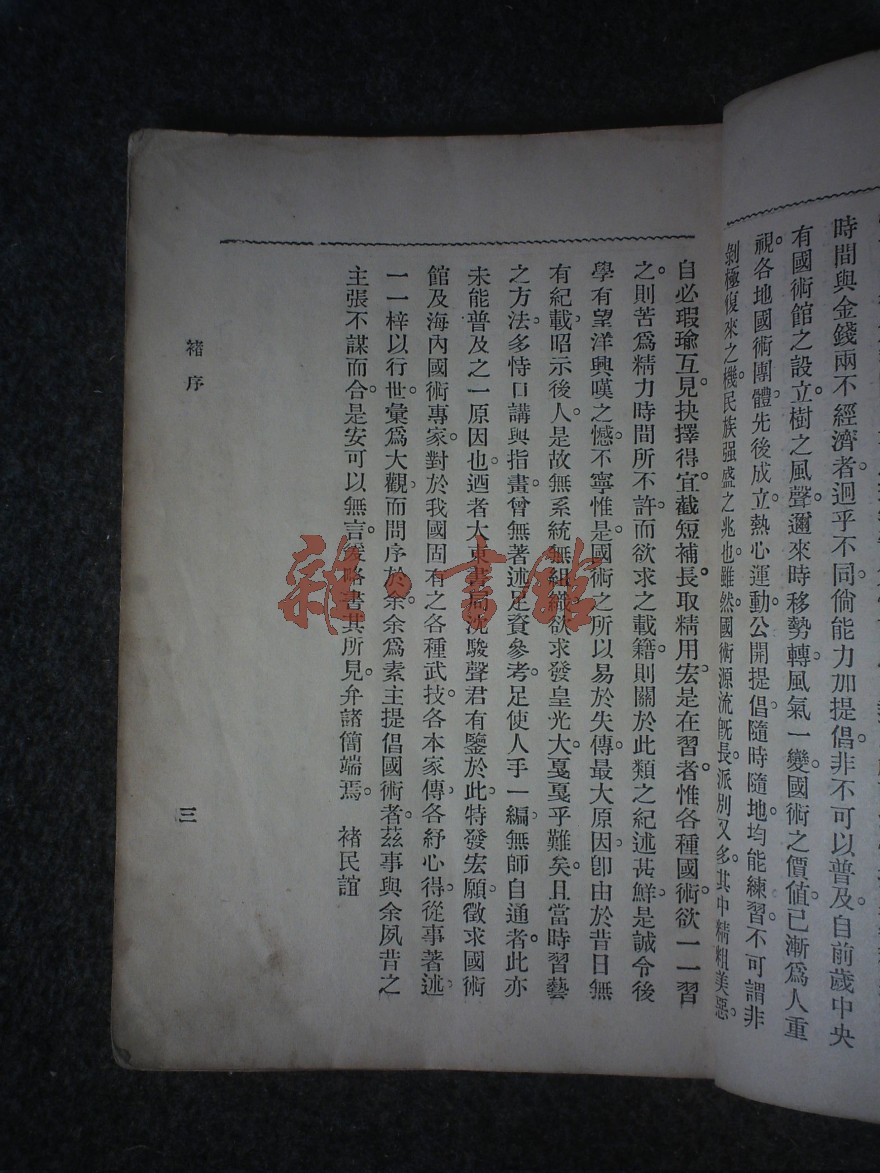 時間與金錢兩不經濟者。迥乎不同。倘能力加提倡。非不可以普及。自前歲中央
有國術館之設立。樹之風聲。邇來時移勢轉。風氣一變。國術之價值。已漸為人重
視。各地國術團體。先後成立。熱心運動。公開提倡。隨時隨地。均能練習。不可謂非
剝極復來之機。民族强盛之兆也。雖然。國術源流旣長。派別又多。其中精粗美惡。
自必瑕瑜互見。抉擇得宜。截短補長。取精用宏。是在習者。惟各種國術。欲一一習
之。則苦爲精力時間所不許。而欲求之載籍。則關於此類之紀述甚鮮。是誠令後
學有望洋興嘆之憾。不寧惟是。國術之所以易於失傳。最大原因。卽由於昔日無
有紀載。昭示後人。是故無系統無組織。欲求發皇光大。戛戛乎難矣。且當時習藝
之方法。多恃口講與指畫。曾無著述足資參考。足使人手一編。無師自通者。此亦
未能普及之一原因也。迺者大東書局沈駿聲君有鑒於此。特發宏願。徵求國術
館及海內國術專家。對於我國固有之各種武技。各本家傳。各紓心得。從事著述。
一一梓以行世。彙爲大觀。而問序於余。余爲素主提倡國術者。茲事與余夙昔之
主張不謀而合。是安可以無言。爰略書其所見。弁諸簡端焉。 褚民誼
褚序
三
雜·書館